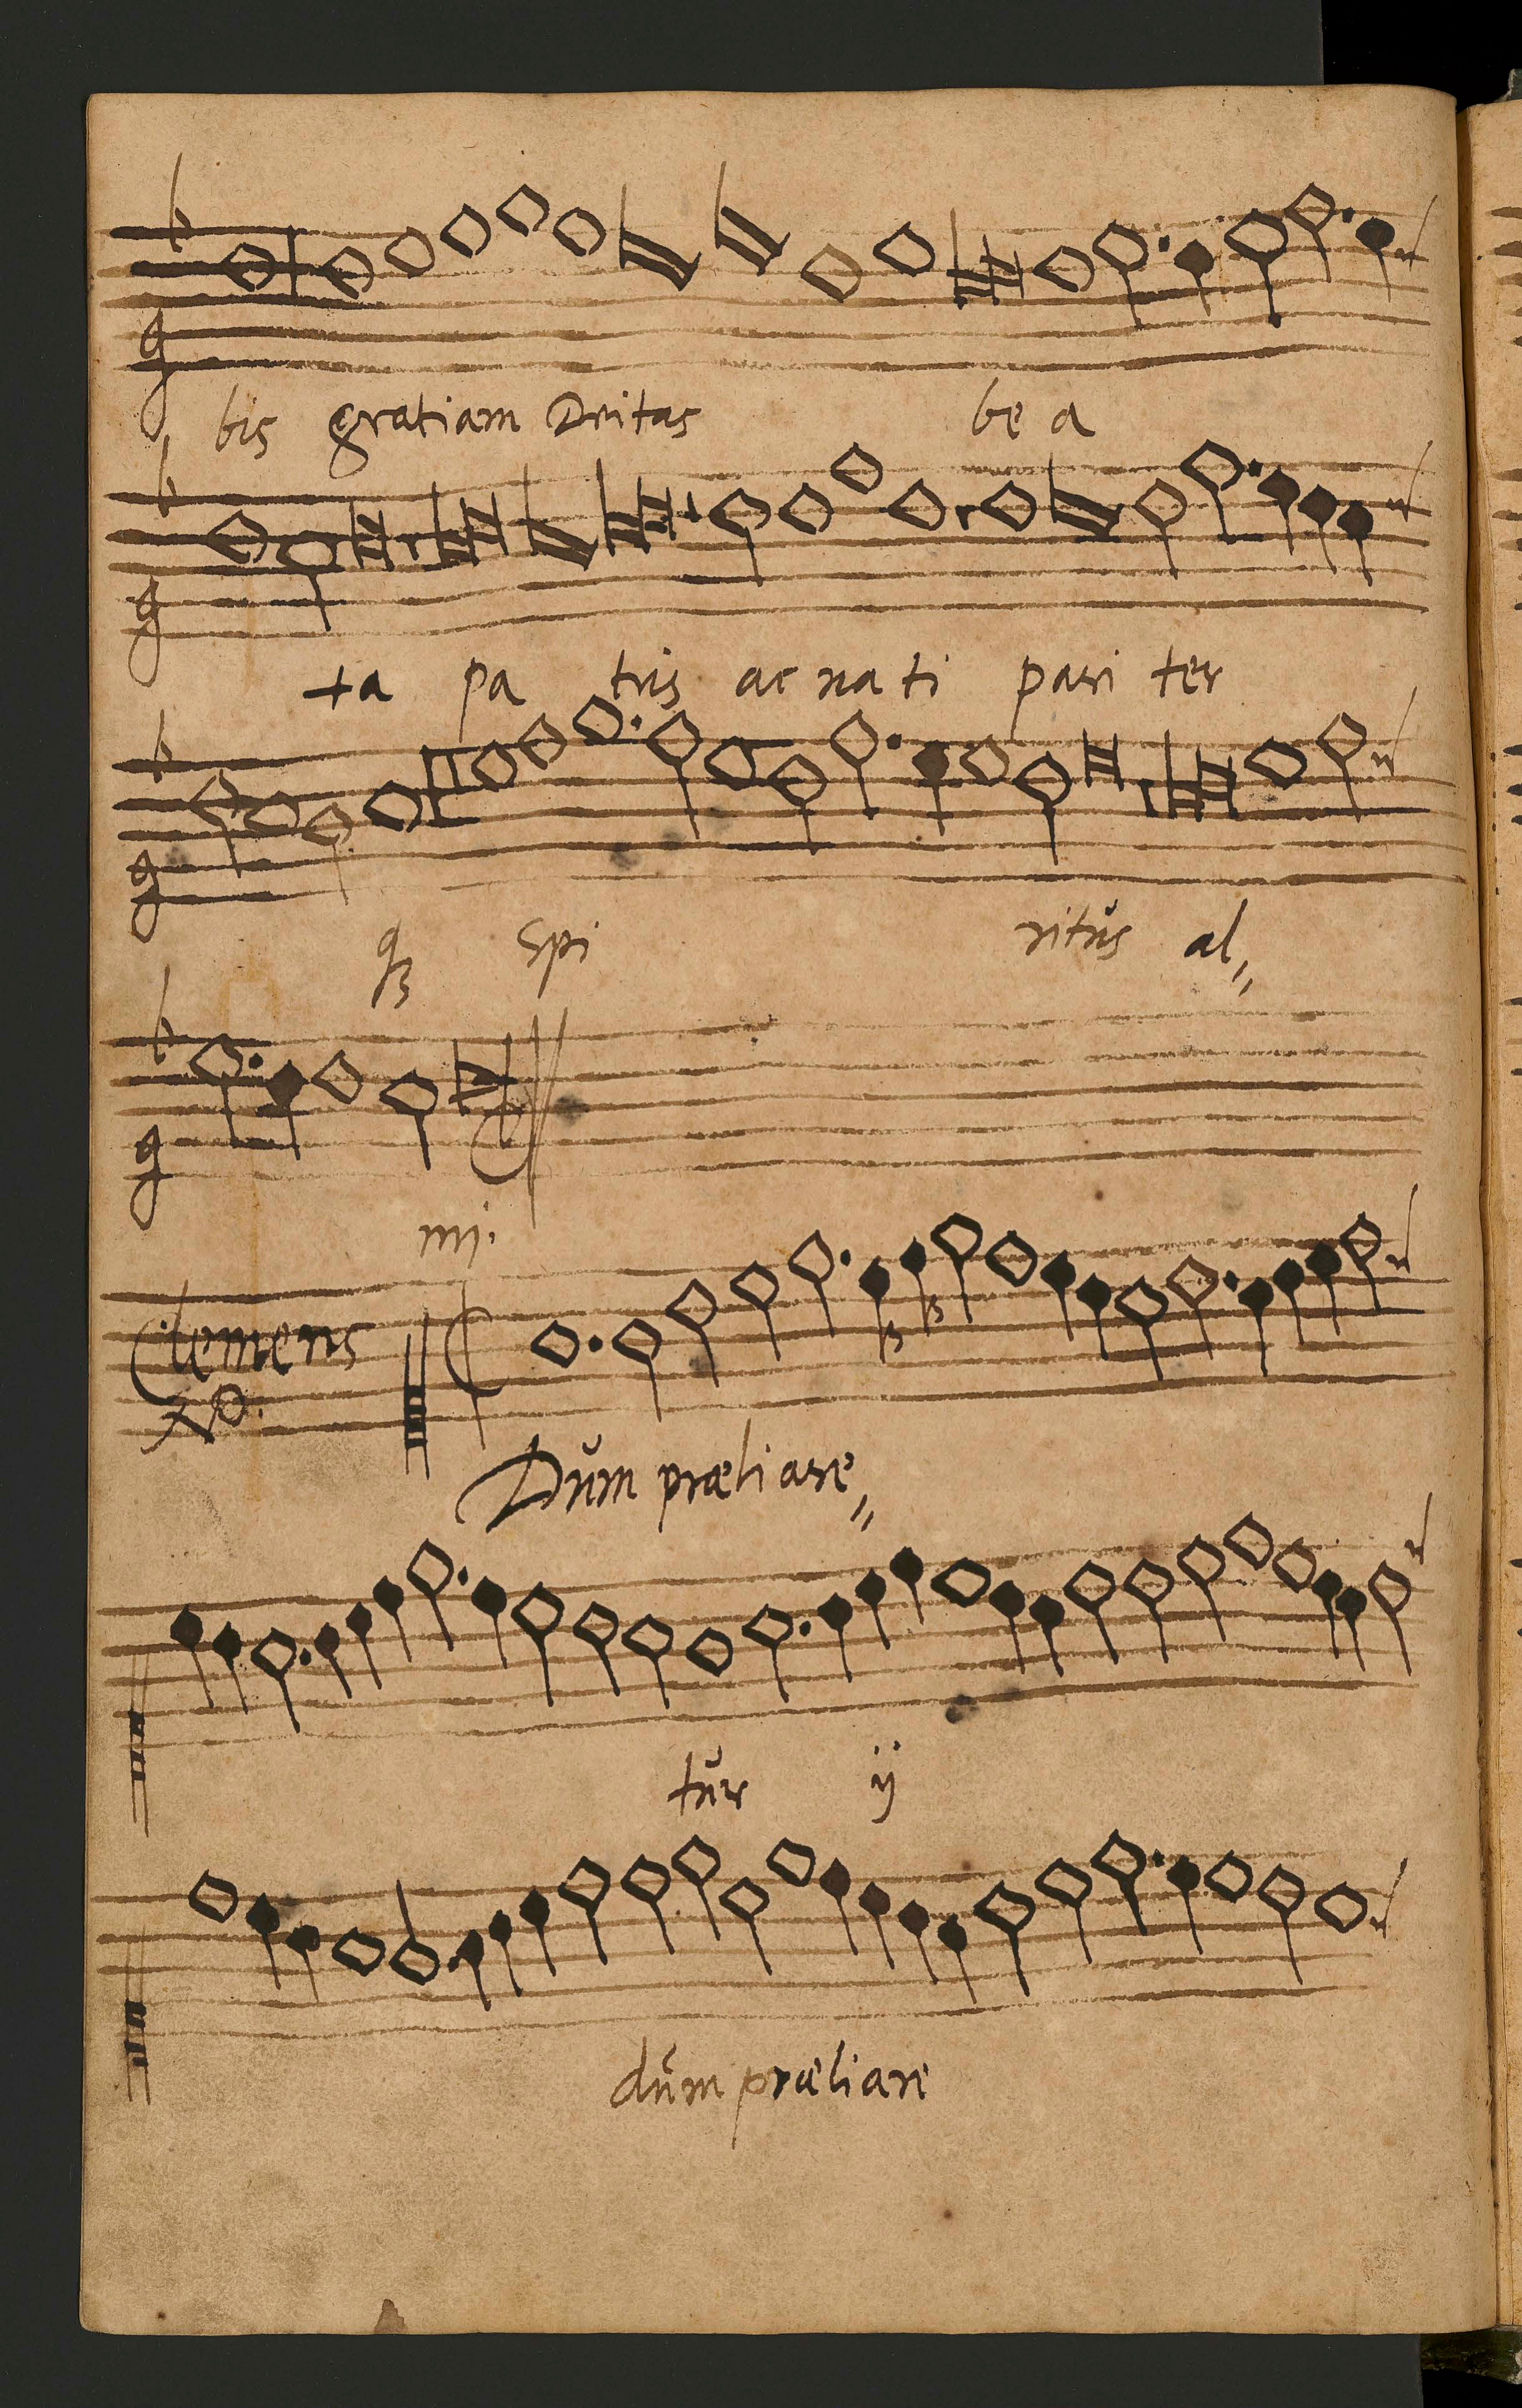 bis gratiam Deitas be a
ta pa tris ac na ti pari ter
qꝫ Spi ritŭs al„
mi.
Clemens
Dŭm præliare„
tŭr ij
dŭm præliare